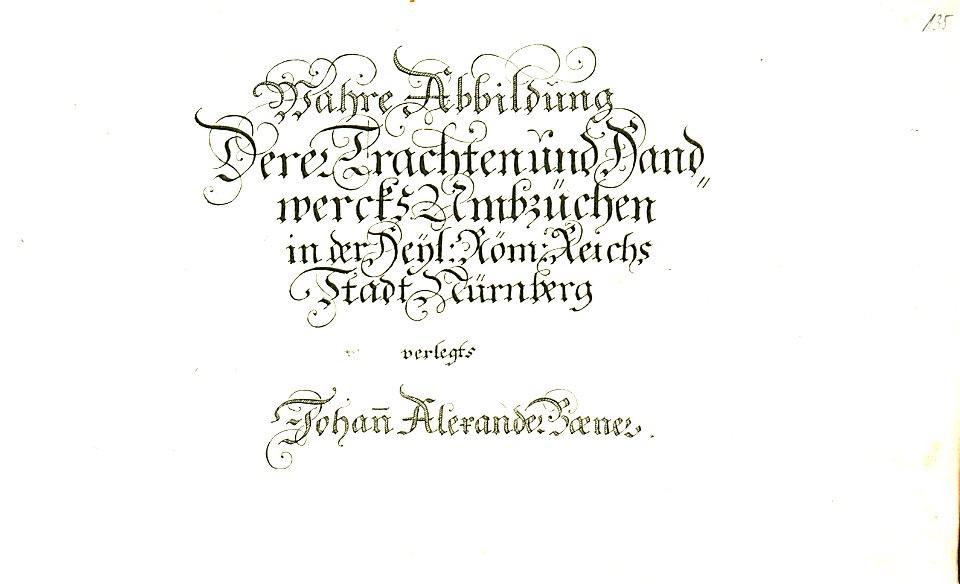 135
Wahre Abbildung
Derer Trachten und Hand„
wercks Umbzüchen
in der Heyl: Röm: Reichs
Stadt Nürnberg
verlegts
Johañ Alexander Bœner.